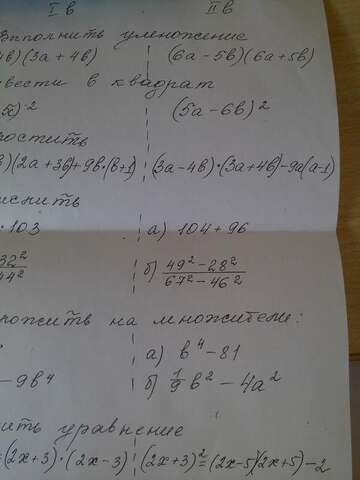 I в II в
Выполнить умножение
4в)(3а + 4в) (6а - 5в)(6а + 5в)
вести в квадрат
5х)² (5а - 6в)²
ростить
в)(2а + 3в) + 9в·(в+1) (3а - 4в)·(3а + 4в) - 9а(а-1)
ислить
· 103 а) 104 + 96
32² / 44² б) 49² - 28² / 67² - 46²
ложить на множители:
а) в⁴ - 81
- 9в⁴ б) 1/9 в² - 4а²
ить уравнение
= (2х+3)·(2х-3) (2х+3)² = (2х-5)(2х+5) - 2